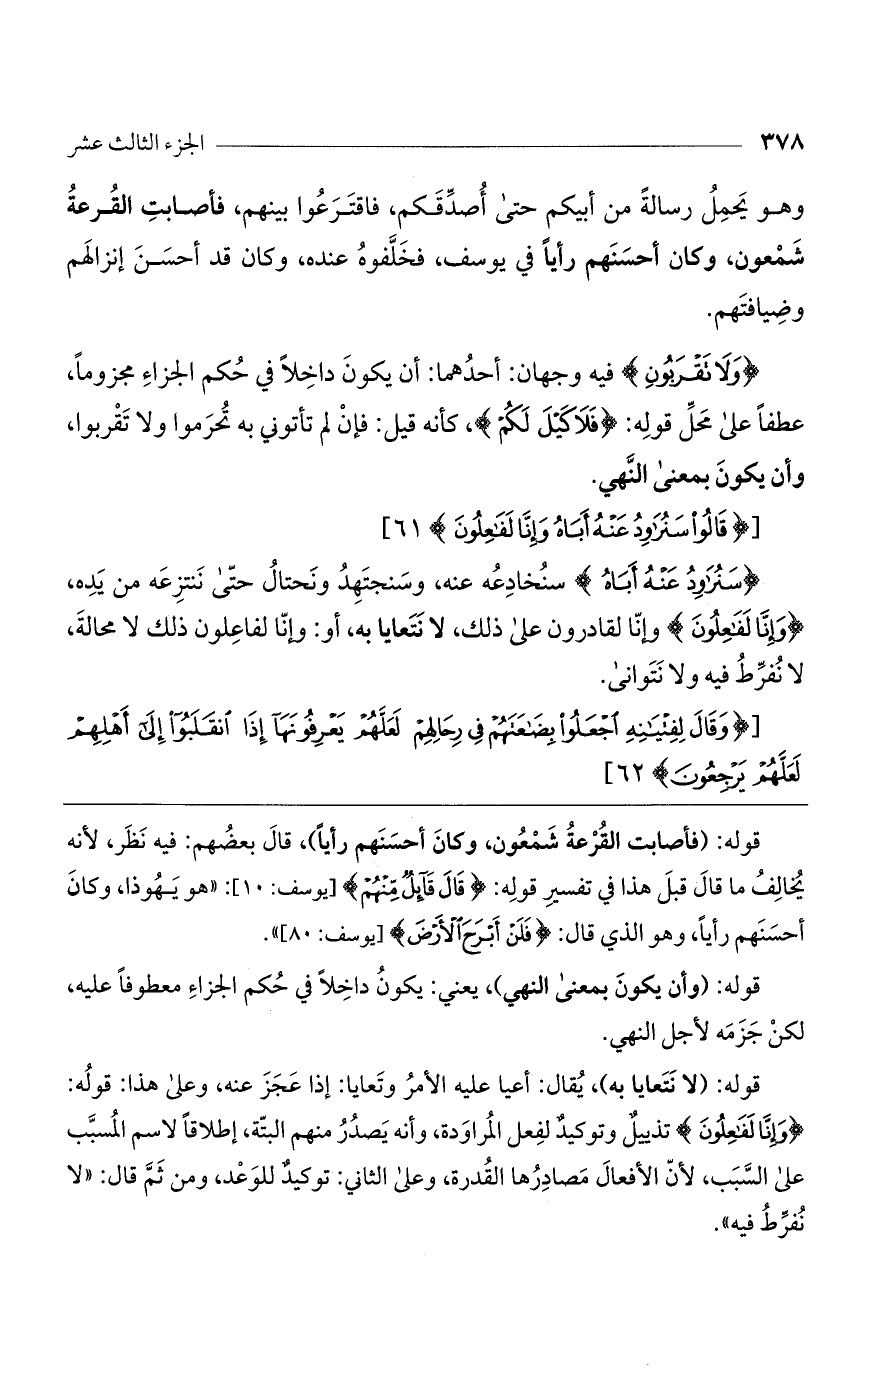 ٣٧٨ الجزء الثالث عشر
وهـو يَحمِلُ رسالةً من أبيكم حتىٰ أُصدِّقَـكم، فاقتَـرَعُوا بينهم، فأصـابتِ القُـرعةُ
شَمْعون، وكان أحسَنَهم رأياً في يوسف، فخَلَّفوهُ عنده، وكان قد أحسَـنَ إنزالَهم
وضِيافتَهم.
﴿وَلَا تَقْرَبُونِ﴾ فيه وجهان: أحدُهما: أن يكونَ داخِلاً في حُكم الجزاءِ مجزوماً،
عطفاً علىٰ مَحلِّ قولِه: ﴿فَلَا كَيْلَ لَكُمْ﴾، كأنه قيل: فإنْ لم تأتوني به تُحرَموا ولا تَقْربوا،
وأن يكونَ بمعنىٰ النَّهي.
[﴿قَالُواْ سَنُرَٰوِدُ عَنْهُ أَبَاهُ وَإِنَّا لَفَٰعِلُونَ﴾ ٦١]
﴿سَنُرَٰوِدُ عَنْهُ أَبَاهُ﴾ سنُخادِعُه عنه، وسَنجتَهِدُ ونَحتالُ حتّىٰ نَنتزِعَه من يَدِه،
﴿وَإِنَّا لَفَٰعِلُونَ﴾ وإنّا لقادرون علىٰ ذلك، لا نَتَعايا به، أو: وإنّا لفاعِلون ذلك لا محالةَ،
لا نُفرِّطُ فيه ولا نَتَوانىٰ.
[﴿وَقَالَ لِفِتْيَٰنِهِ ٱجْعَلُواْ بِضَٰعَتَهُمْ فِي رِحَالِهِمْ لَعَلَّهُمْ يَعْرِفُونَهَآ إِذَا ٱنقَلَبُوٓاْ إِلَىٰٓ أَهْلِهِمْ
لَعَلَّهُمْ يَرْجِعُونَ﴾ ٦٢]
قوله: (فأصابت القُرْعةُ شَمْعُون، وكانَ أحسَنَهم رأياً)، قالَ بعضُهم: فيه نَظَر، لأنه
يُخالِفُ ما قالَ قبلَ هذا في تفسيرِ قولِه: ﴿قَالَ قَآئِلٌ مِّنْهُمْ﴾ [يوسف: ١٠]: «هو يَـهُوذا، وكانَ
أحسَنَهم رأياً، وهو الذي قال: ﴿فَلَنْ أَبْرَحَ ٱلْأَرْضَ﴾ [يوسف: ٨٠]».
قوله: (وأن يكونَ بمعنىٰ النهي)، يعني: يكونُ داخِلاً في حُكم الجزاءِ معطوفاً عليه،
لكنْ جَزَمَه لأجل النهي.
قوله: (لا نَتَعايا به)، يُقال: أعيا عليه الأمرُ وتَعايا: إذا عَجَزَ عنه، وعلىٰ هذا: قولُه:
﴿وَإِنَّا لَفَٰعِلُونَ﴾ تذييلٌ وتوكيدٌ لفِعل المُراوَدة، وأنه يَصدُرُ منهم البتّة، إطلاقاً لاسم المُسبَّب
علىٰ السَّبَب، لأنّ الأفعالَ مَصادِرُها القُدرة، وعلىٰ الثاني: توكيدٌ للوَعْد، ومن ثَمَّ قال: «لا
نُفرِّطُ فيه».